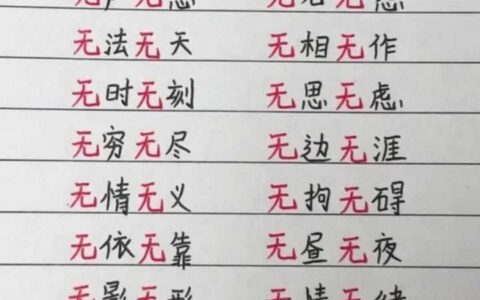 无法无天 无相无作
无时无刻 无思无虑
无穷无尽 无边无涯
无情无义 无拘无碍
无依无靠 无昼无夜
无影无形 无情无绪